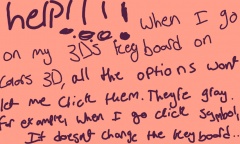 help!!!! When I go
on my 3Ds keyboard on
Colors 3D, all the options wont
let me click them. They're gray.
for example, when I go click symbol,
It doesnt change the keyboard..